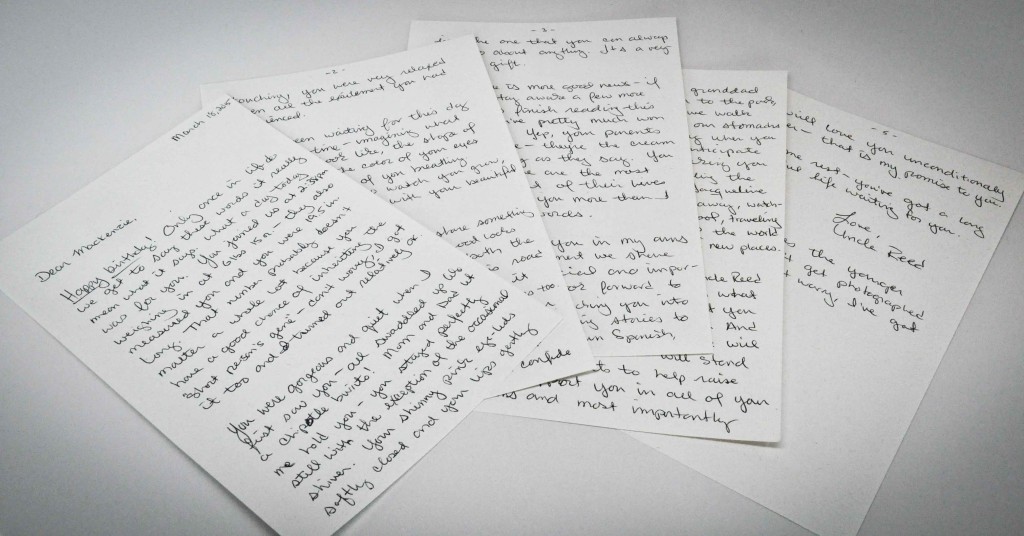 March 18, 2015
Dear Mackenzie,
Happy birthday! Only once in life do
we get to say these words it really
mean what it says. what a day-today
was for you. You joined us at 2:58pm
weighing in at
measured you and you were 18.5 in
long. That number probably doesn't
matter a whole lot because you
have a good chance of inheriting the
"short person's gene" - don't worry, I got
it too and I turned out relatively ok
You were gorgeous and quiet when I
first saw you - all swaddled up like
a chipotle burrito! Mom and Dad let
me hold you - you stayed perfectly
still with the exception of the occasional
shiver. Your shinny pink eye-lids
softly closed and your lips gently
-2-
touching you were very relaxed
all the excitement you had
been waiting for this day
time - imagining what
like, the shape of
color of your eyes
of you breathing
watch you grow,
with you beautiful
share something
good looks
both the
road
it
too
confide
-3-
the one that you can always
about anything. It's a very
gift.
is more good news - if
stay awake a few more
finish reading this
pretty much won
Yep, your parents
- they're the cream
as they say. You
are the most
of their lives
you more than I
words.
you in my arms
moment we share
and impor-
look forward to
you into
stories to
in Spanish,
granddad
to the park,
we walk
our stomachs
when you
anticipate
you
the
Jacqueline
away, watch-
traveling
the world
new places.
Uncle Reed
what
you
And
will
will stand
to help raise
you in all of your
and most importantly
-5-
will love you unconditionally
- that is my promise to you.
some rest - you've got a long
life waiting for you.
Love,
Uncle Reed
the younger
get photographed
worry I've got